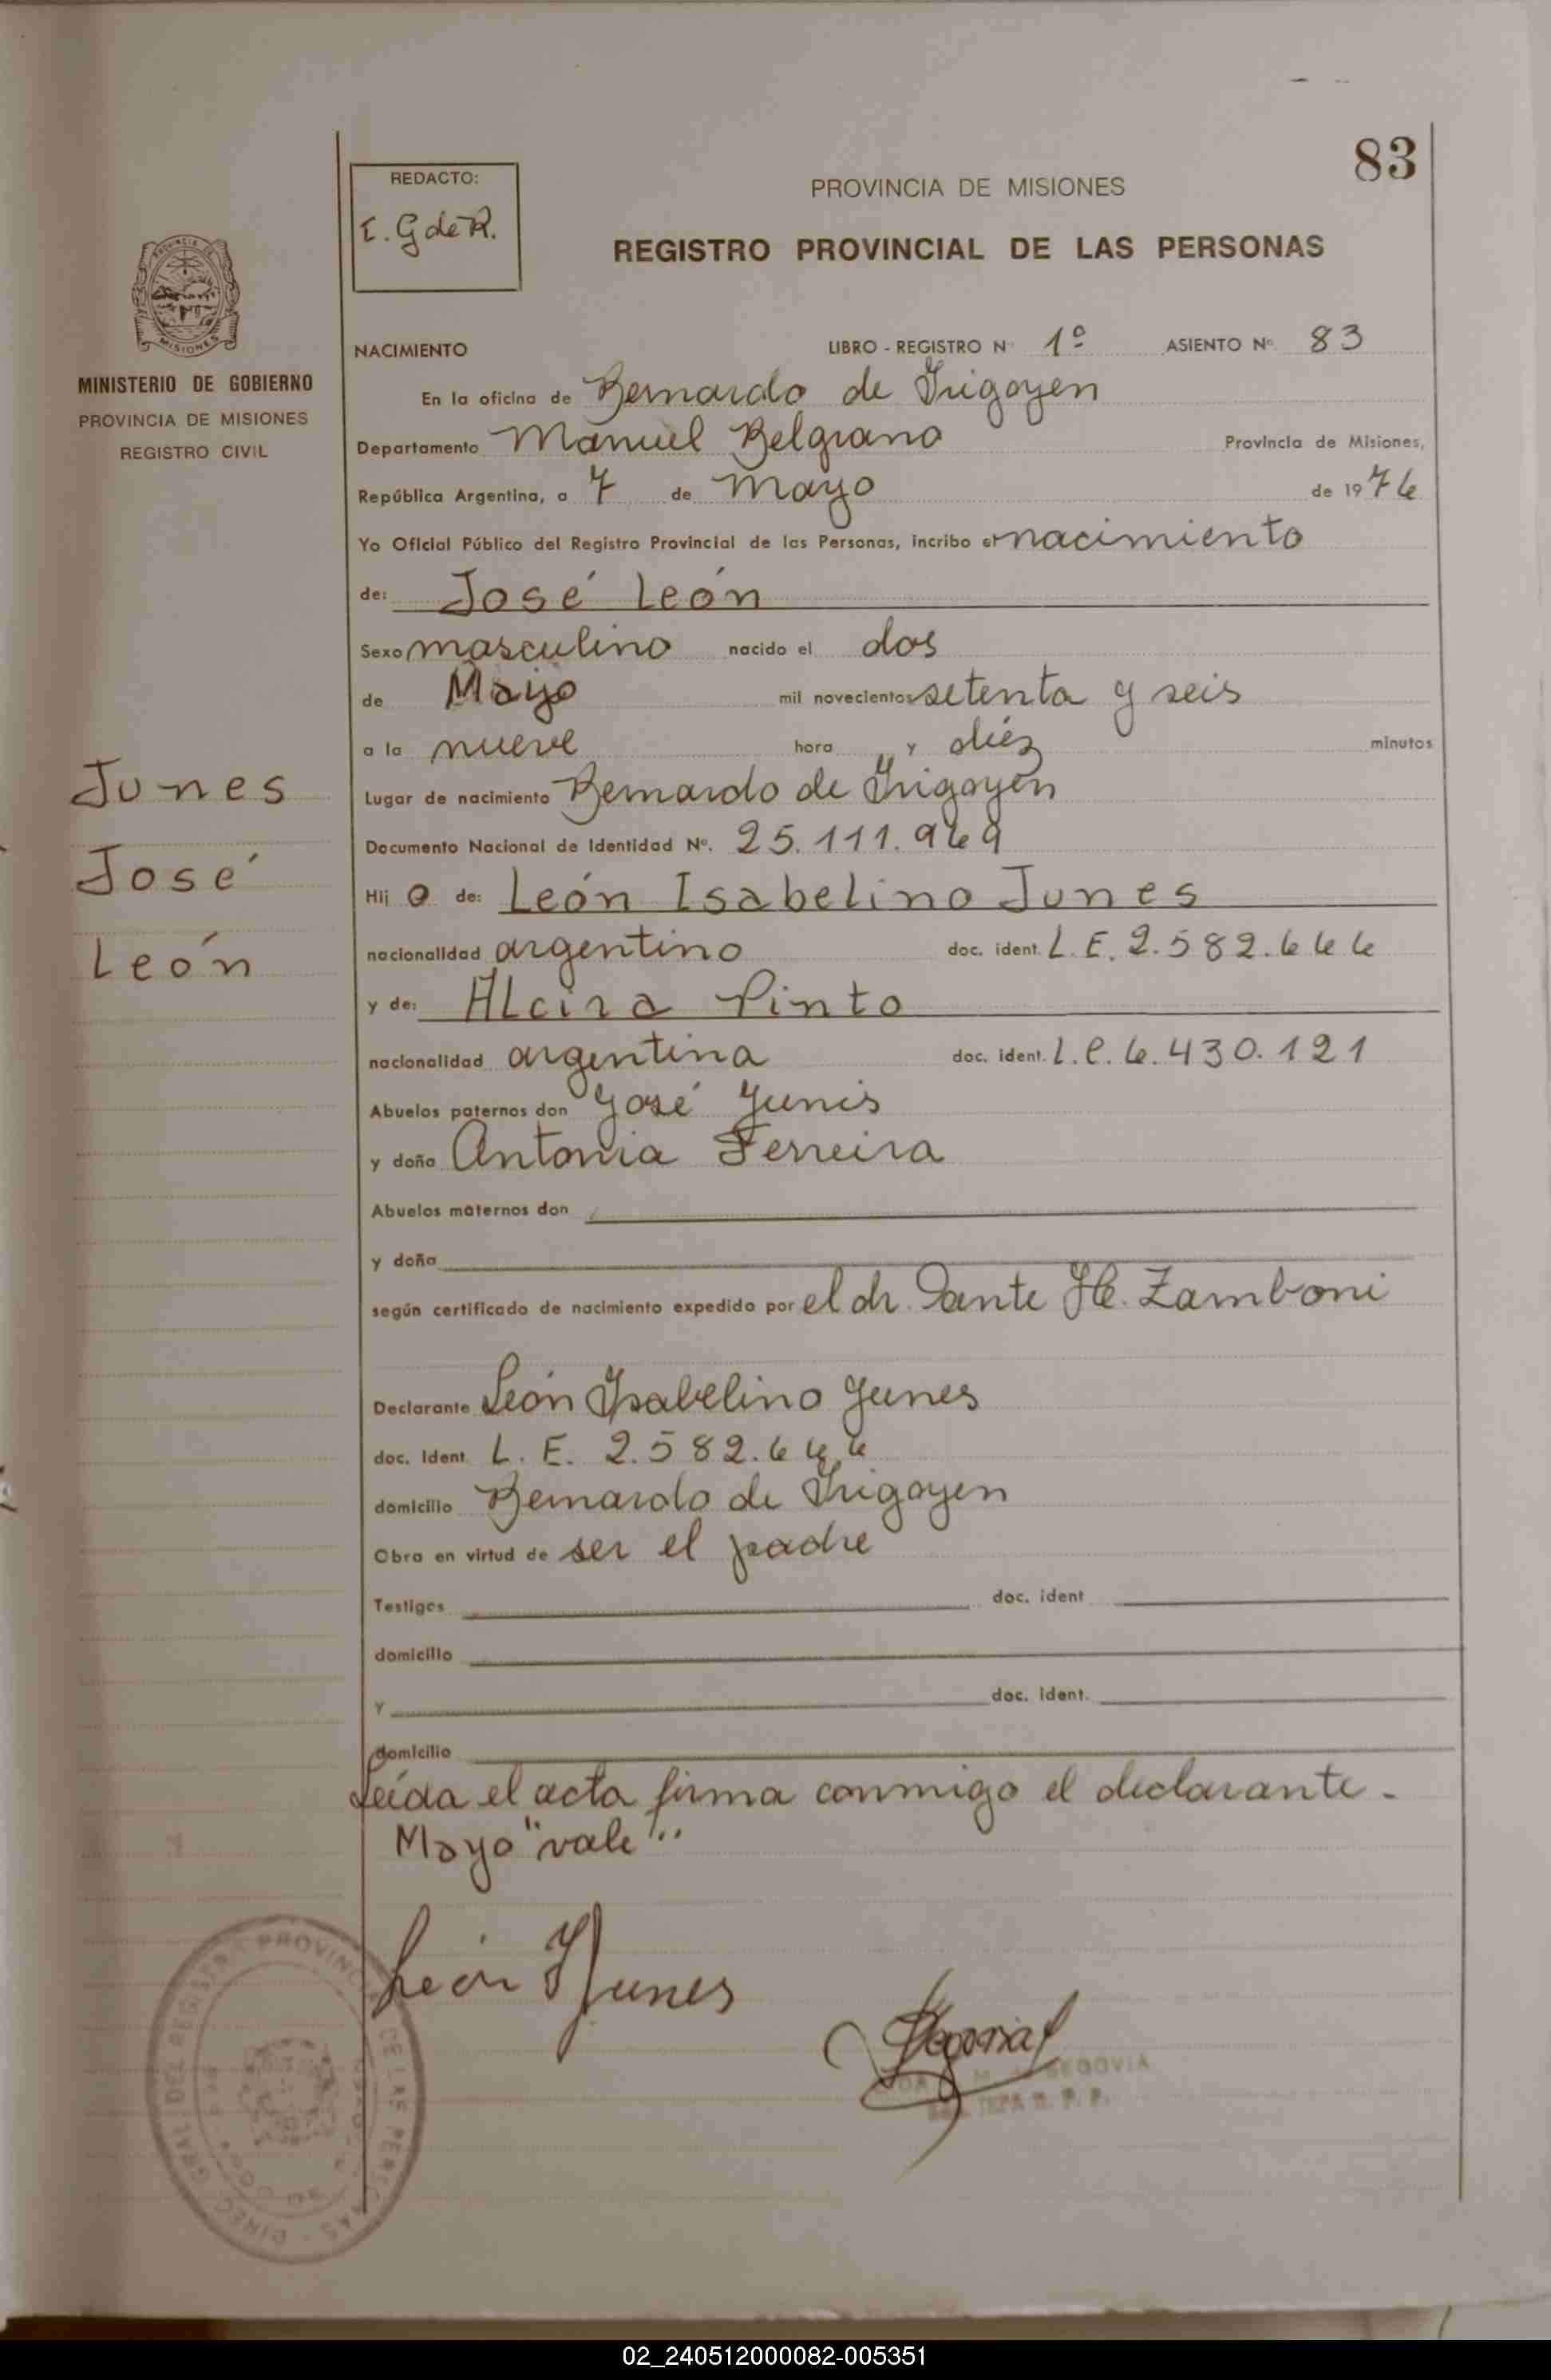 83
REDACTO:
E. G de R.
PROVINCIA DE MISIONES
REGISTRO PROVINCIAL DE LAS PERSONAS
MINISTERIO DE GOBIERNO
PROVINCIA DE MISIONES
REGISTRO CIVIL
NACIMIENTO LIBRO - REGISTRO Nº 1º ASIENTO Nº 83
En la oficina de Bernardo de Irigoyen
Departamento Manuel Belgrano Provincia de Misiones,
República Argentina, a 7 de Mayo de 1976
Yo Oficial Público del Registro Provincial de las Personas, incribo el nacimiento
de: José León
Sexo masculino nacido el dos
de Mayo mil novecientos setenta y seis
a la nueve hora y diéz minutos
Junes
José
León
Lugar de nacimiento Bernardo de Irigoyen
Documento Nacional de Identidad Nº. 25.111.969
Hij o de: León Isabelino Junes
nacionalidad argentino doc. ident. L.E. 2.582.666
y de: Alcira Pinto
nacionalidad argentina doc. ident. L.C. 6.430.121
Abuelos paternos don José Yunis
y doña Antonia Ferreira
Abuelos maternos don
y doña
según certificado de nacimiento expedido por el dr. Dante H. Zamboni
Declarante León Isabelino Junes
doc. Ident L. E. 2.582.666
domicilio Bernardo de Irigoyen
Obra en virtud de ser el padre
Testigos doc. ident
domicilio
y doc. ident.
domicilio
Leída el acta firma conmigo el declarante.
Mayo "vale"..
León Junes
Segovia
SEGOVIA
02_240512000082-005351